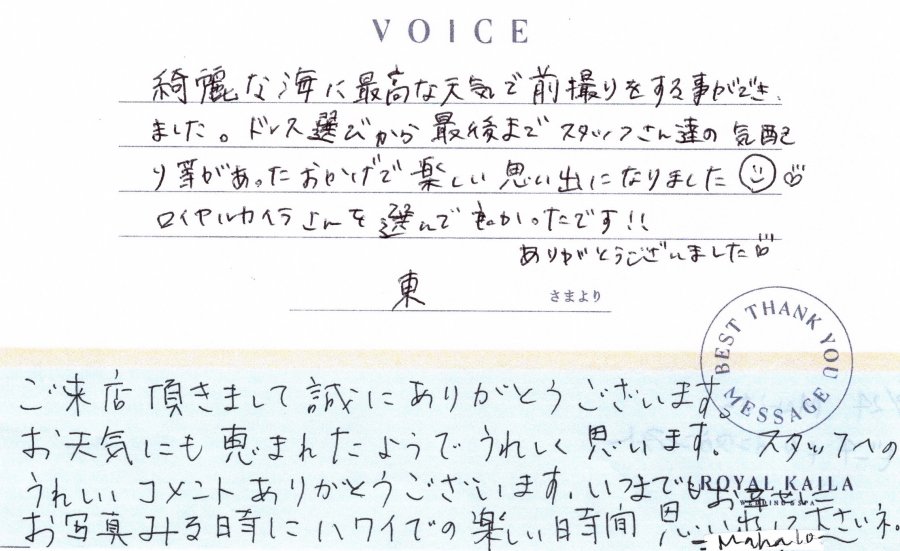 VOICE
綺麗な海に最高な天気で前撮りをする事ができ、
ました。ドレス選びから最後までスタッフさん達の気配
り等があったおかげで楽しい思い出になりました
ロイヤルカイラさんを選んで良かったです!!
ありがとうございました
東 さまより
BEST THANK YOU MESSAGE
ご来店頂きまして誠にありがとうございます。
お天気にも恵まれたようでうれしく思います。スタッフへの
うれしいコメントありがとうございます。いつまでもお幸せに
ROYAL KAILA
お写真みる時にハワイでの楽しい日時間思い出して下さいネ。
Mahalo